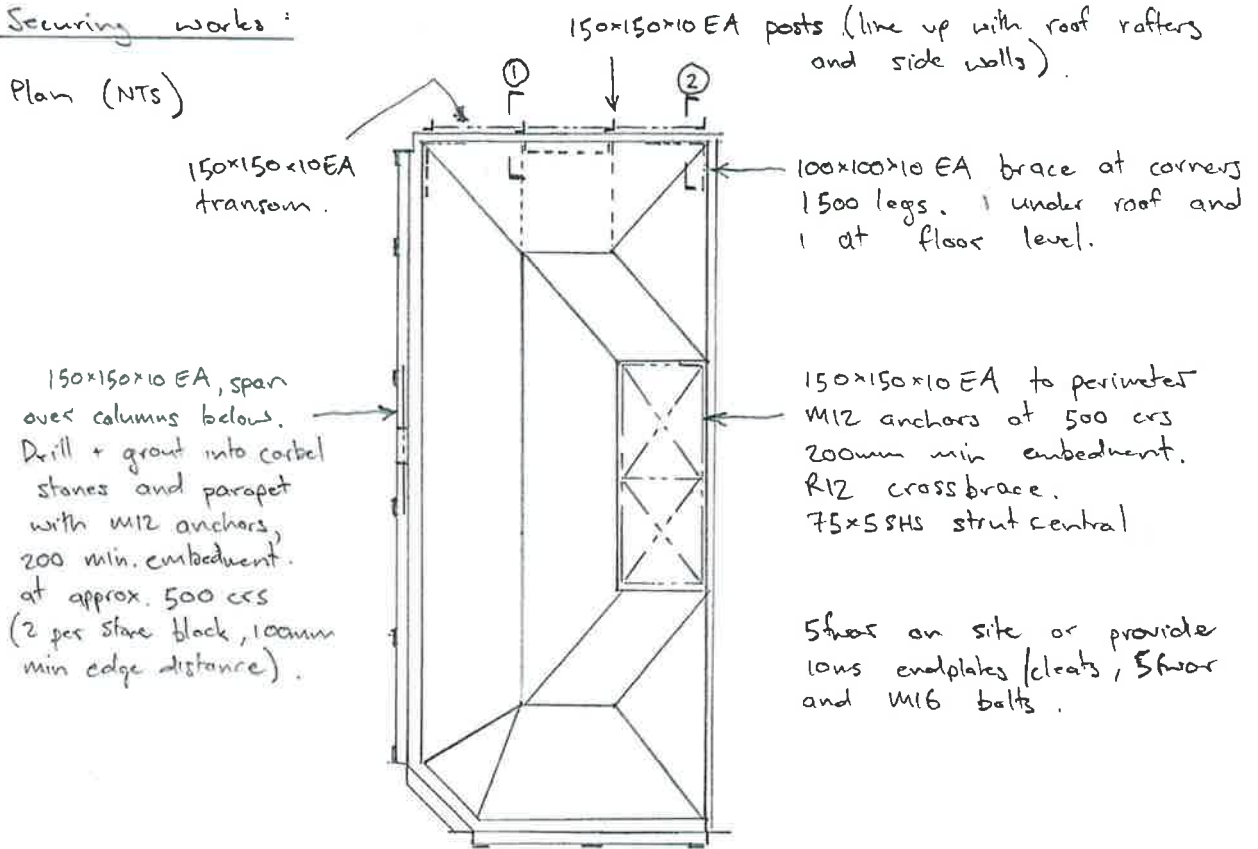 Securing works:
Plan (NTS)
150×150×10 EA posts (line up with roof rafters
and side walls).
1
2
150×150×10 EA
transom.
100×100×10 EA brace at corners
1500 legs. 1 under roof and
1 at floor level.
150×150×10 EA, span
over columns below.
Drill + grout into corbel
stones and parapet
with M12 anchors,
200 min. embedment.
at approx. 500 crs
(2 per stone block, 100mm
min edge distance).
150×150×10 EA to perimeter
M12 anchors at 500 crs
200mm min embedment.
R12 crossbrace.
75×5 SHS strut central
5fwar on site or provide
10ms endplates/cleats, 5fwar
and M16 bolts.